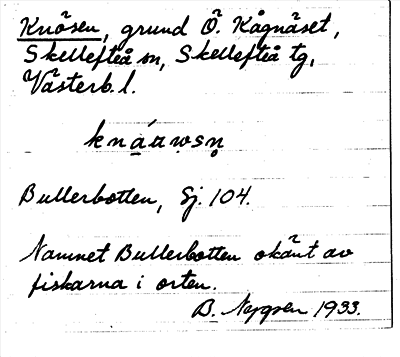 Knösen, grund Ö. Kågnäset,
Skellefteå sn, Skellefteå tg,
Västerb. l.
Bullerbotten, Sj. 104.
Namnet Bullerbotten okänt av
fiskarna i orten.
B. 1933.